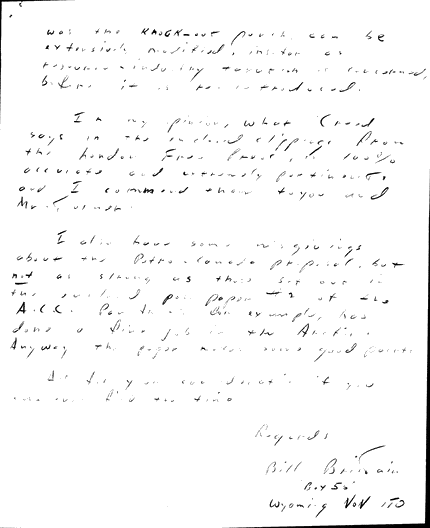 was the KNOCK-out punch, can be
extensively modified, insofar as
resource-industry taxation is concerned,
before it is re-introduced.
In my opinion, what Creed
says in the enclosed clippings from
the London Free Press, is 100%
accurate and extremely pertinent
and I commend them to you and
Mr.
I also have some misgivings
about the Petro-Canada proposal, but
not as strong as those set out in
the enclosed paper #2 of the
A.C.C. Pan Arctic, for example, has
done a fine job in the Arctic.
Anyway the paper makes some good points.
you can
the time
Regards
Bill Brittain
Box 55
Wyoming NON 1T0